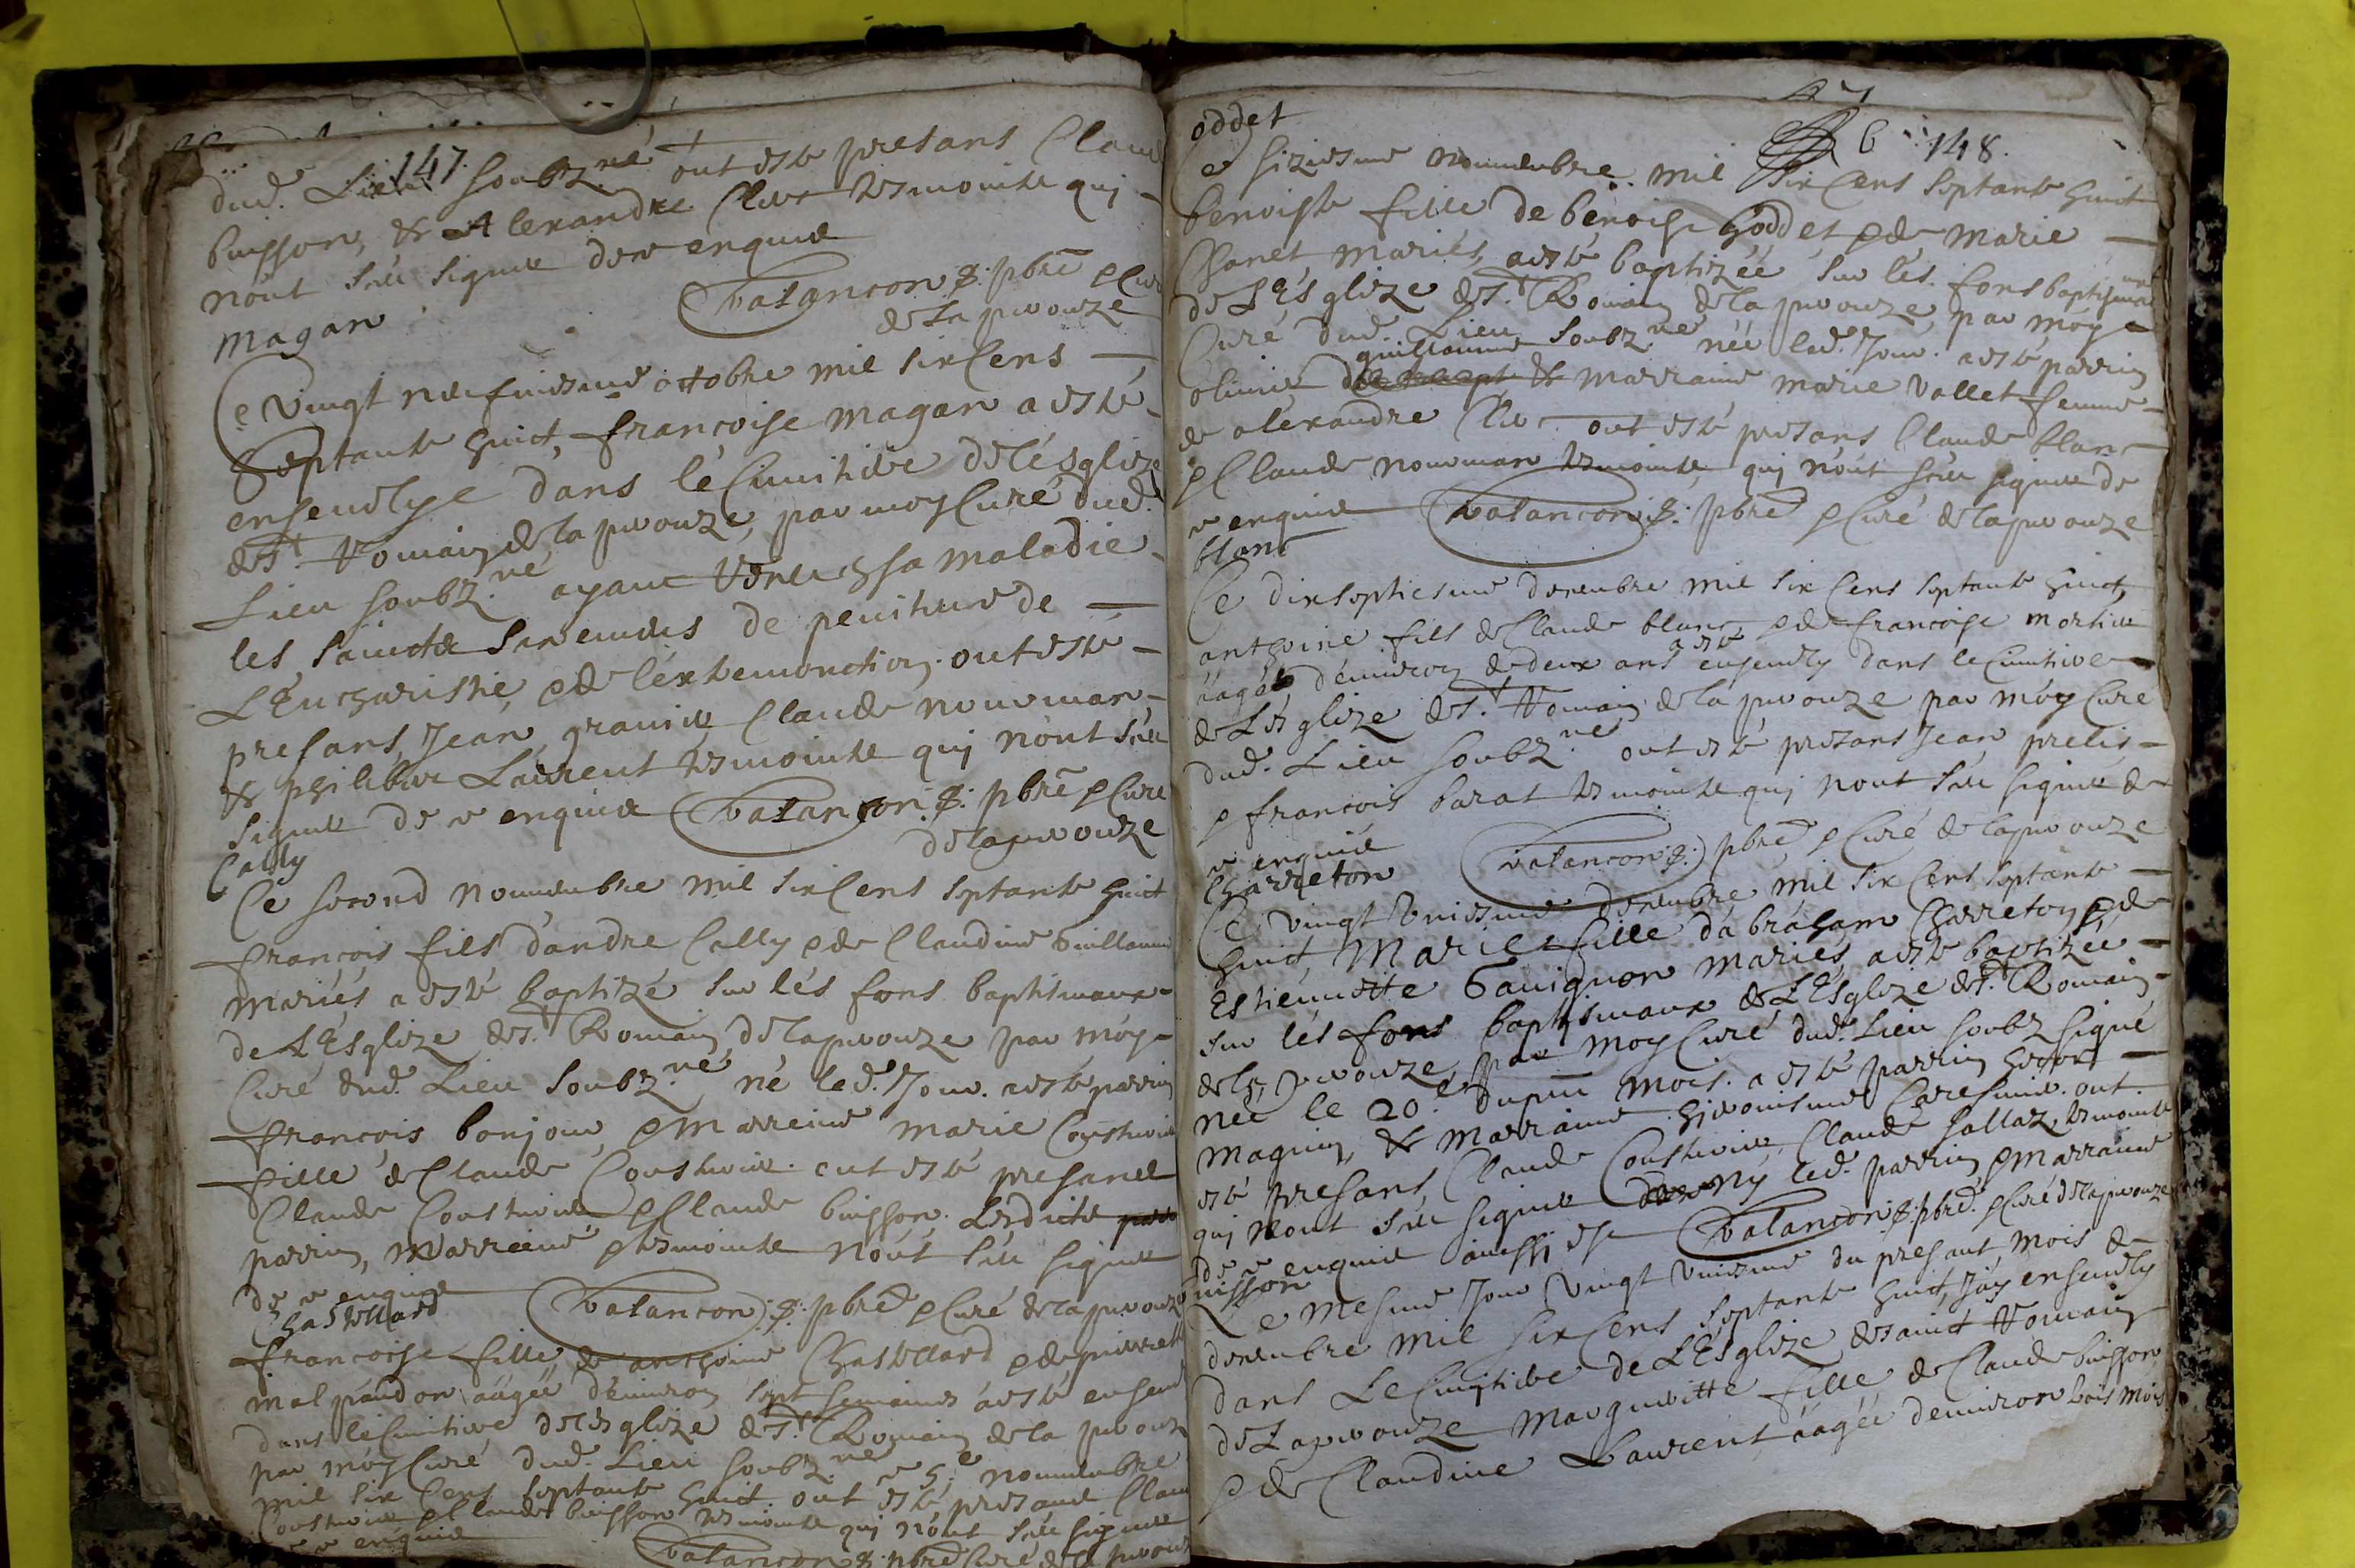 147.
dud. Lieu soubz.né ont esté presans Claude
buisson, & Alexandre Clerc tesmointz qui
nont sceu signer de ce enquis
Magan
Valancon p.bre & Curé
de la perouze
Ce vingt neufiesme octobre mil six Cens
Septante huict, françoise Magan a esté
ensevelye dans le Cimitiere de lésglize
de St. Romain de la perouze, par moy Curé dud.
Lieu soubz.né ayant receu en sa maladie
les saincts Sacrements de penitence de
L'Eucharistie, & de l'extremonction. ont esté
presans, Jean granier Claude nouvman
& philibert Laurent tesmointz qui nont sceu
signer de ce enquis Valancon p.bre & Curé
de la perouze
Cally
Ce second novembre mil six Cens septante huict
françois fils d'andre Cally & de Claudine Guillaume
mariés a esté baptizé sur lés fons baptismaux
de L'Esglize de St. Romain de la perouze par moy
Curé dud. Lieu soubz.né né led. Jour. a esté parrin
françois bonjour, & Marreine Marie Cousturier
fille de Claude Cousturier. ont esté presans
Claude Cousturier & Claude buisson. Lesdicts
parrin, Marreine & tesmointz nont sceu signer
de ce enquis
Chastellard
Valancon p.bre & Curé de la perouze
françoise fille de anthoine Chastellard & de pierrette
malpaudon aagée d'environ sept semaines a esté ensevelye
dans le Cimitiere de lésglize de St. Romain de la perouze
par moy Curé dud. Lieu soubz.né ce 5.e novembre
mil six Cens septante huict. ont esté presans Claude
Cousturier & Claude buisson tesmointz qui n'ont sceu signer
de ce enquis
Valancon p.bre Curé de la perouze
6 148.
oddet
Ce sixiesme novembre mil six Cens septante huict
benoiste fille de benoist hoddet & de Marie
Chanet mariés, a esté baptizée sur lés fons baptismaux
de L'Esglize de St. Romain de la perouze, par moy
Curé dud. Lieu soubz.né née led. Jour. a esté parrin
olivier guillaume & marraine marie vallet femme
de alexandre Clerc. ont esté presans Claude blanc
& Claude nouvman tesmointz qui n'ont sceu signer de
ce enquis Valancon p.bre & Curé de la perouze
blanc
Ce dixseptiesme decembre mil six Cens septante huict,
anthoine fils de Claude blanc, & de françoise mortier
aagé d'environ de deux ans a esté ensevely dans le Cimitiere
de L'ésglize de St. Romain de la perouze par moy Curé
dud. Lieu soubz.né ont esté presans Jean prelis
& françois barat tesmointz qui nont sceu signer de
ce enquis Valancon p.bre & Curé de la perouze
Charreton
Ce vingt Uniesme decembre mil six Cens septante
huict, Marie fille d'abraham Charreton & de
Estiennette Gauignon mariés, a esté baptizée
sur lés fons baptismaux de L'Esglize de St. Romain
de la perouze, par moy Curé dud. Lieu soubz signé
née le 20.e dupnt mois. a esté parrin
Magnin, & Marraine hieronisme Caresmier. ont
esté presans, Claude Cousturier, Claude sallaz, tesmointz
qui nont sceu signer ny led. parrin & Marraine
de ce enquis aussi Valancon p.bre & Curé de la perouze
buisson
Le Mesme Jour vingt Uniesme du presant mois de
decembre mil six Cens septante huict, J'ay ensevely
dans Le Cimitiere de L'Esglize de sainct Romain
de La perouze Margueritte fille de Claude buisson
& de Claudine Laurent, aagée d'environ trois mois